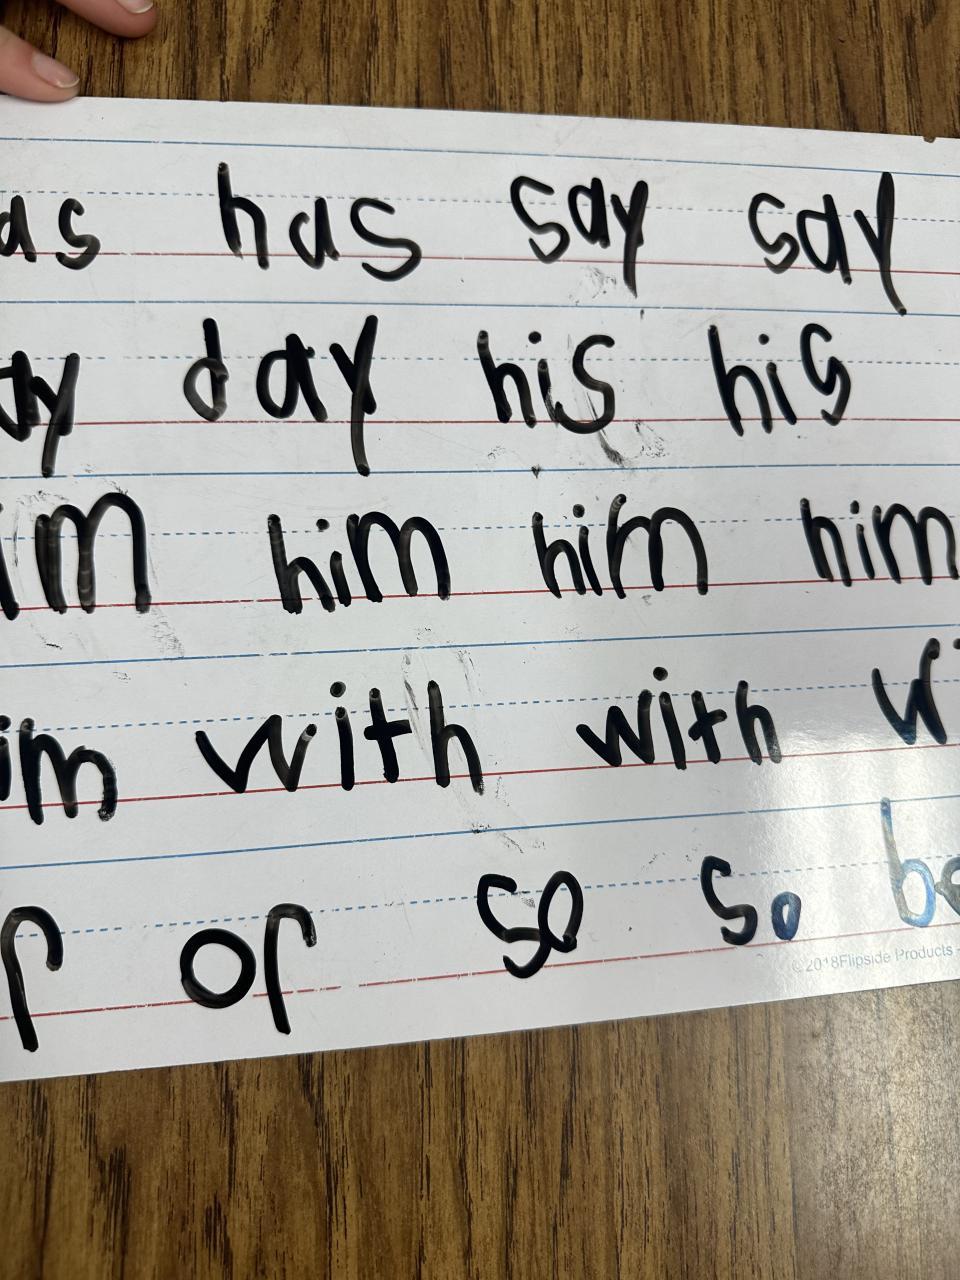 as has say say
ay day his his
im him him him
im with with w
r or so so be
©2018Flipside Products